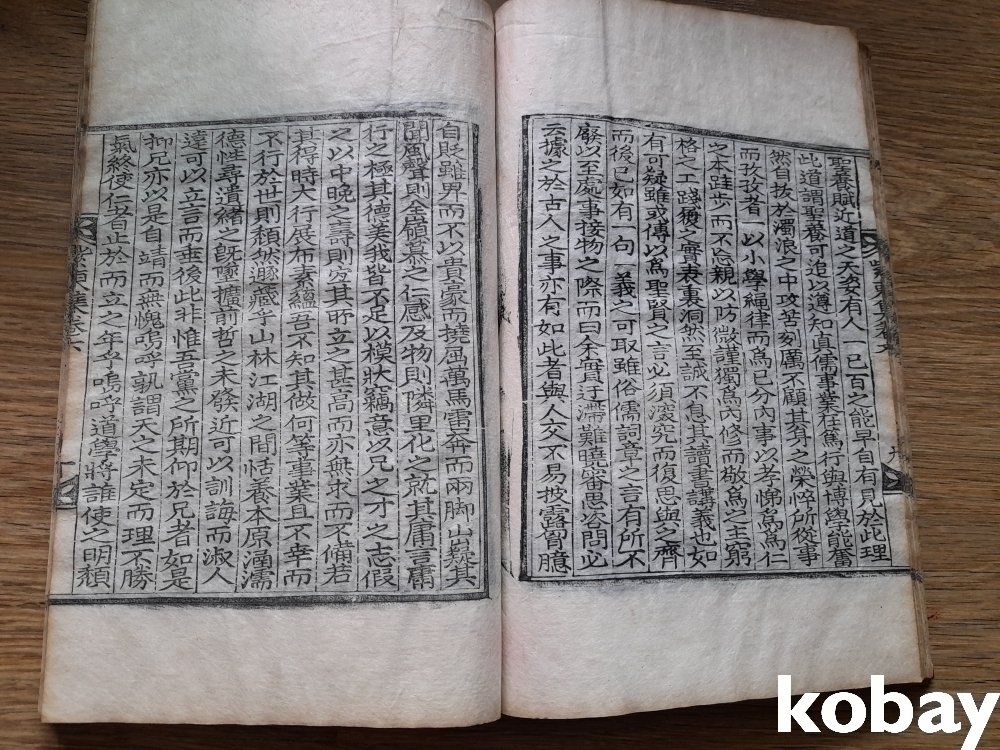 聖養賦近道之天姿有人一己百之能早自有見於此理
此道謂聖養可追以溥知眞儒事業在篤行與博學能奮
然自拔於濁浪之中攻苦刻厲不顧其身之榮悴所從事
而孜孜者一以小學繩律而爲己分內事以孝悌爲爲仁
之本跬步而不忘親以防微謹獨爲內修而敬爲之主窮
格之工踐履之實表裏洞然至誠不息其讀書講義也如
有可疑雖或傳以爲聖賢之言必須深究而復思與之齊
而後已如有一句一義之可取雖俗儒詞章之言有所不
廢以至處事接物之際而曰余實迂滯難曉審思咨問必
云據之於古人之事亦有如此者與人交不易披露胷臆
自貶雖男而不以貴豪而撓屈萬馬雷奔而兩脚山嶷其
聞風聲則僉領慕之仁感及物則隣里化之就其庸言庸
行之極其德美我皆不足以模狀竊意以兄之才之志假
之以中晚之壽則穷其所立之甚高而亦無求而不備若
其得時大行展布素蘊吾不知其做何等事業且不幸而
不行於世則頹然遯藏乎山林江湖之間恬養本原涵濡
德性尋遺緒之旣墜擴前哲之未發近可以訓誨而淑人
遠可以立言而垂後此非惟吾黨之所期仰於兄者如是
抑兄亦以是自靖而無愧嗚呼孰謂天之未定而理不勝
氣終使仁者止於而立之年乎嗚呼道學將誰使之明頹
kobay